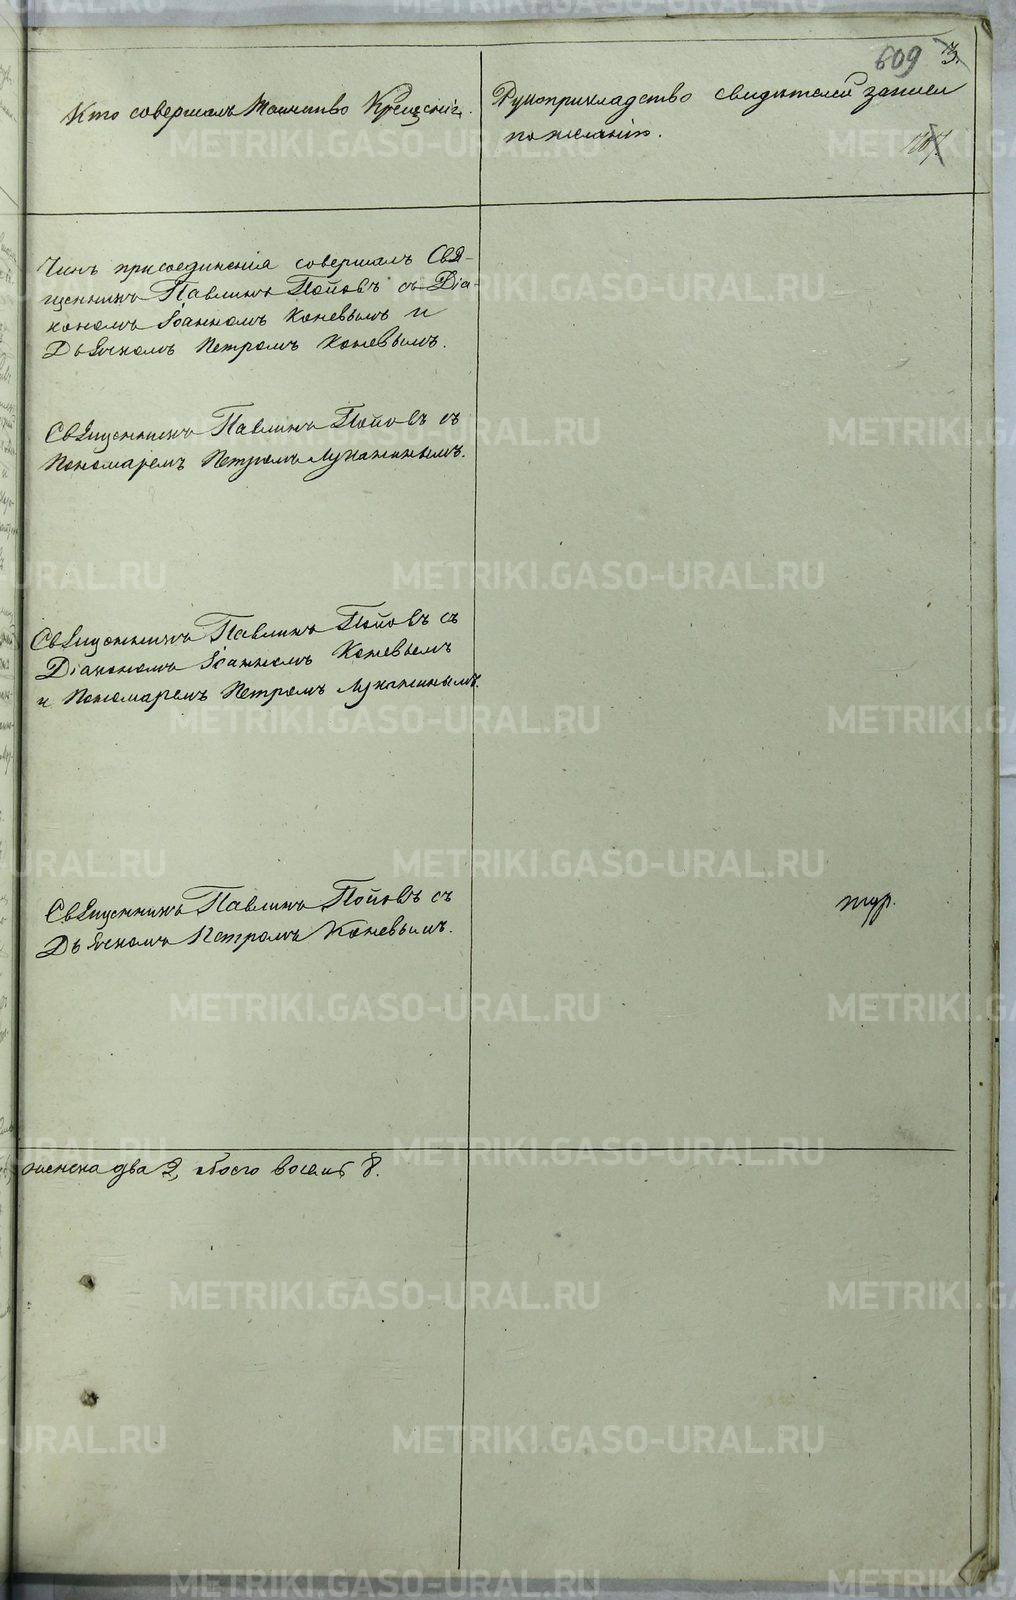 609 3.
Кто совершалъ Таинство Крещенія.
Рукоприкладство свидѣтелей записи
по желанію.
Чинъ присоединенія совершалъ Свя-
щенникъ Павлинъ Поповъ съ Діа-
кономъ Іоанномъ Коневымъ и
Дьячкомъ Петромъ Коневымъ.
Священникъ Павлинъ Поповъ съ
Пономаремъ Петромъ Лукажинымъ.
Священникъ Павлинъ Поповъ съ
Діакономъ Іоанномъ Коневымъ
и Пономаремъ Петромъ Лукажинымъ.
Священникъ Павлинъ Поповъ съ
Дьячкомъ Петромъ Коневымъ.
женска два 2, обоего восемь 8.
METRIKI.GASO-URAL.RU